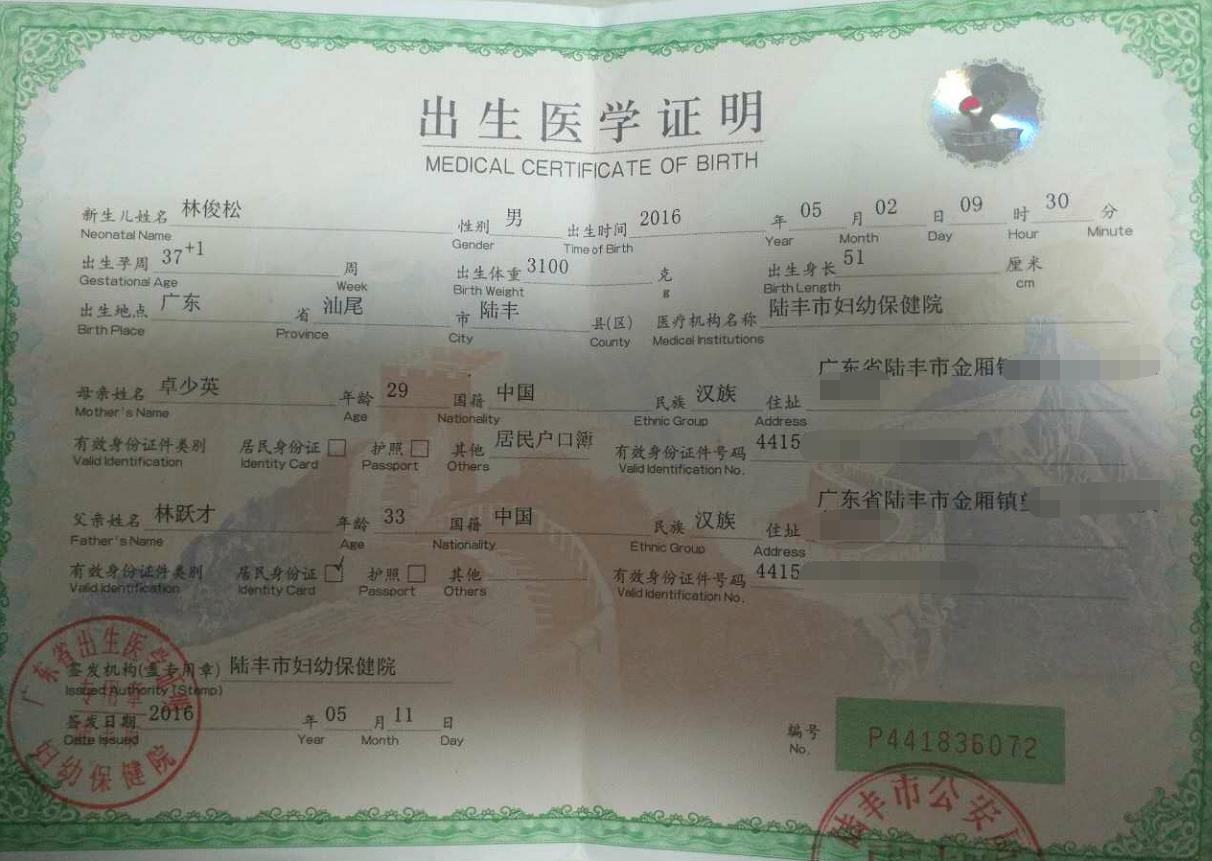 出生医学证明
MEDICAL CERTIFICATE OF BIRTH
新生儿姓名 林俊松 性别 男 出生时间 2016 年 05 月 02 日 09 时 30 分
Neonatal Name Gender Time of Birth Year Month Day Hour Minute
出生孕周 37+1 周 出生体重 3100 克 出生身长 51 厘米
Gestational Age Week Birth Weight g Birth Length cm
出生地点 广东 省 汕尾 市 陆丰 县(区) 医疗机构名称 陆丰市妇幼保健院
Birth Place Province City County Medical Institutions
母亲姓名 卓少英 年龄 29 国籍 中国 民族 汉族 住址 广东省陆丰市金厢镇
Mother's Name Age Nationality Ethnic Group Address
有效身份证件类别 居民身份证 护照 其他 居民户口簿 有效身份证件号码 4415
Valid Identification Identity Card Passport Others Valid Identification No.
父亲姓名 林跃才 年龄 33 国籍 中国 民族 汉族 住址 广东省陆丰市金厢镇
Father's Name Age Nationality Ethnic Group Address
有效身份证件类别 居民身份证 ✓ 护照 其他 有效身份证件号码 4415
Valid Identification Identity Card Passport Others Valid Identification No.
签发机构(盖专用章) 陆丰市妇幼保健院
Issued Authority (Stamp)
签发日期 2016 年 05 月 11 日
Date Issued Year Month Day
编号 P441836072
No.
广东省出生医学证明
专用章
妇幼保健院
陆丰市公安局